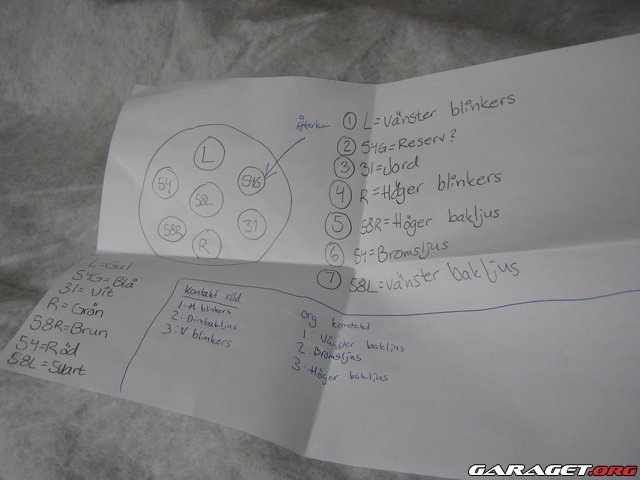 Återkom
L
54
54G
58L
58R
31
R
1 L=Vänster blinkers
2 54G=Reserv?
3 31=Jord
4 R=Höger blinkers
5 58R=Höger bakljus
6 54=Bromsljus
7 58L=Vänster bakljus
L=Gul
54G=Blå
31=Vit
R=Grön
58R=Brun
54=Röd
58L=Svart
Kontakt röd
1:H blinkers
2: Dimbakljus
3:V blinkers
org kontakt
1: Vänster bakljus
2: Bromsljus
3: Höger bakljus
GARAGET.ORG